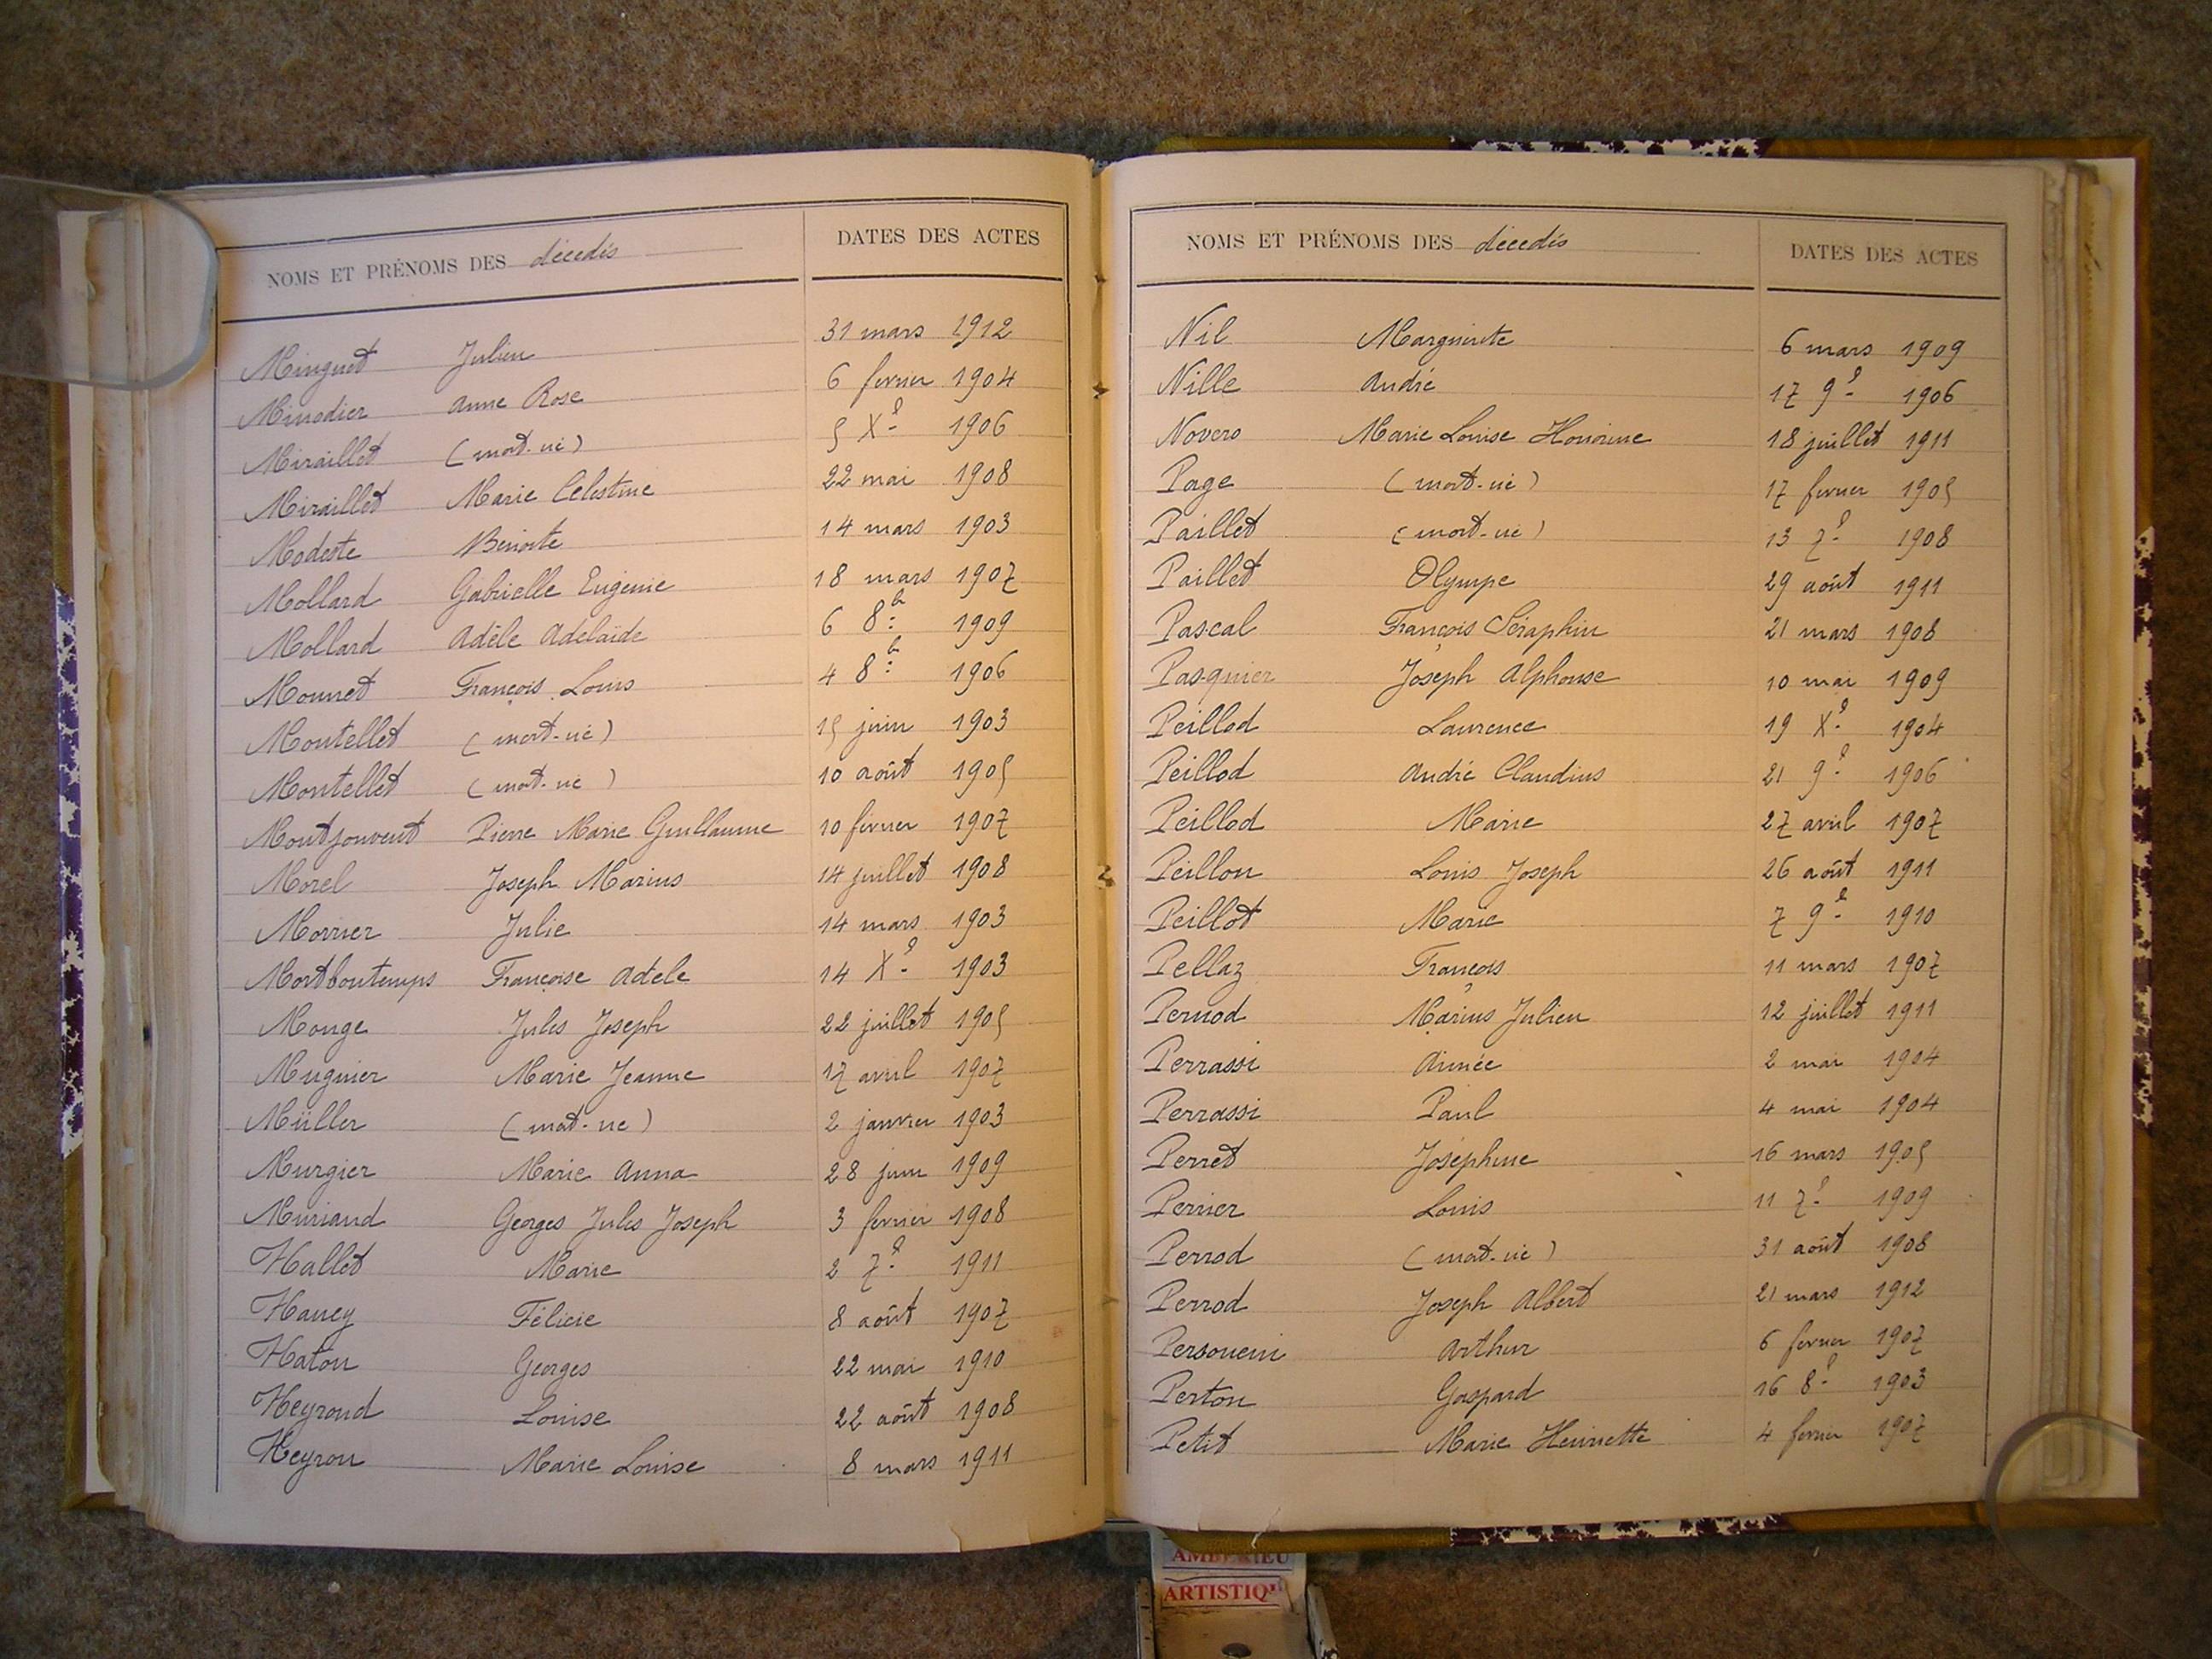 NOMS ET PRÉNOMS DES décedés DATES DES ACTES
Minguet Julien 31 mars 1912
Minodier Anne Rose 6 fevrier 1904
Miraillet (mort-né) 5 Xe 1906
Miraillet Marie Celestine 22 mai 1908
Modeste Benoite 14 mars 1903
Mollard Gabrielle Eugenie 18 mars 1907
Mollard Adèle Adelaïde 6 8b 1909
Monnet François Louis 4 8b 1906
Montellet (mort-né) 15 juin 1903
Montellet (mort-né) 10 août 1905
Montjouvent Pierre Marie Guillaume 10 février 1907
Morel Joseph Marius 14 juillet 1908
Morrier Julie 14 mars 1903
Mortbontemps Françoise Adele 14 Xe 1903
Mouge Jules Joseph 22 juillet 1905
Mugnier Marie Jeanne 17 avril 1907
Müller (mort-né) 2 janvier 1903
Murgier Marie Anna 28 juin 1909
Muriand Georges Jules Joseph 3 fevrier 1908
Nallet Marie 2 7e 1911
Nancy Félicie 8 août 1907
Naton Georges 22 mai 1910
Neyroud Louise 22 août 1908
Neyron Marie Louise 8 mars 1911
NOMS ET PRÉNOMS DES décedés DATES DES ACTES
Nil Marguerite 6 mars 1909
Nille André 17 9e 1906
Novero Marie Louise Honorine 18 juillet 1911
Page (mort-né) 17 fevrier 1905
Paillet (mort-né) 13 7e 1908
Paillet Olympe 29 août 1911
Pascal François Séraphin 21 mars 1908
Pasquier Joseph Alphonse 10 mai 1909
Peillod Laurence 19 Xe 1904
Peillod André Claudius 21 9e 1906
Peillod Marie 27 avril 1907
Peillon Louis Joseph 26 août 1911
Peillot Marie 7 9e 1910
Pellaz François 11 mars 1907
Pernod Marius Julien 12 juillet 1911
Perrassi Aimée 2 mai 1904
Perrassi Paul 4 mai 1904
Perret Joséphine 16 mars 1905
Perrier Louis 11 7e 1909
Perrod (mort-né) 31 août 1908
Perrod Joseph Albert 21 mars 1912
Personeni Arthur 6 fevrier 1907
Perton Gaspard 16 8e 1903
Petit Marie Henriette 4 fevrier 1907
AMBERIEU
ARTISTIQU